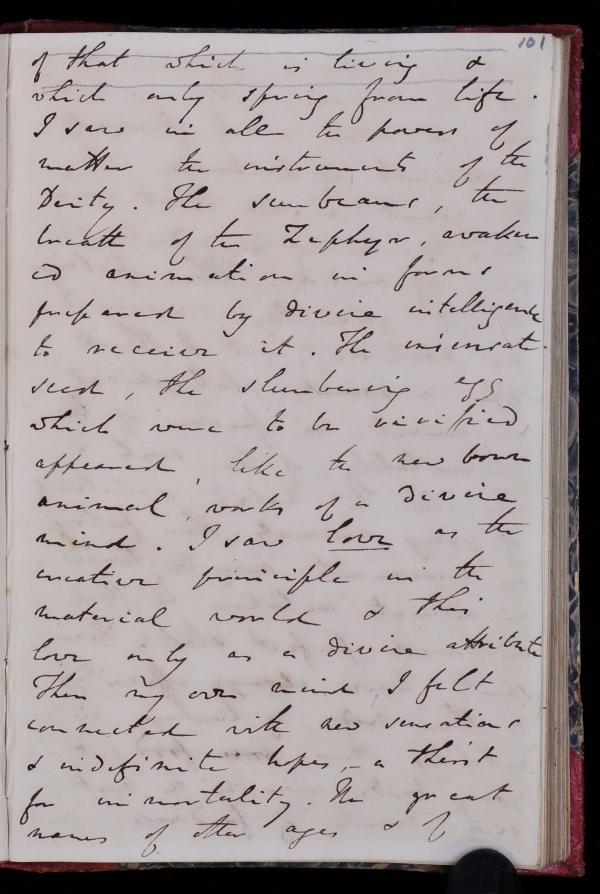 101
of that which is living &
which only spring from life.
I saw in all the powers of
matter the instruments of the
Deity. The sunbeams, the
breath of the Zephyr, awaken
ed animation in forms
prepared by divine intelligence
to receive it. The insensate
seed, the slumbering egg
which were to be vivified,
appeared, like the new born
animal, works of a divine
mind. I saw love as the
creative principle in the
material world & this
love only as a divine attribute
Then my own mind I felt
connected with new sensations
& indefinite hopes, – a thirst
for immortality. The great
names of other ages & of